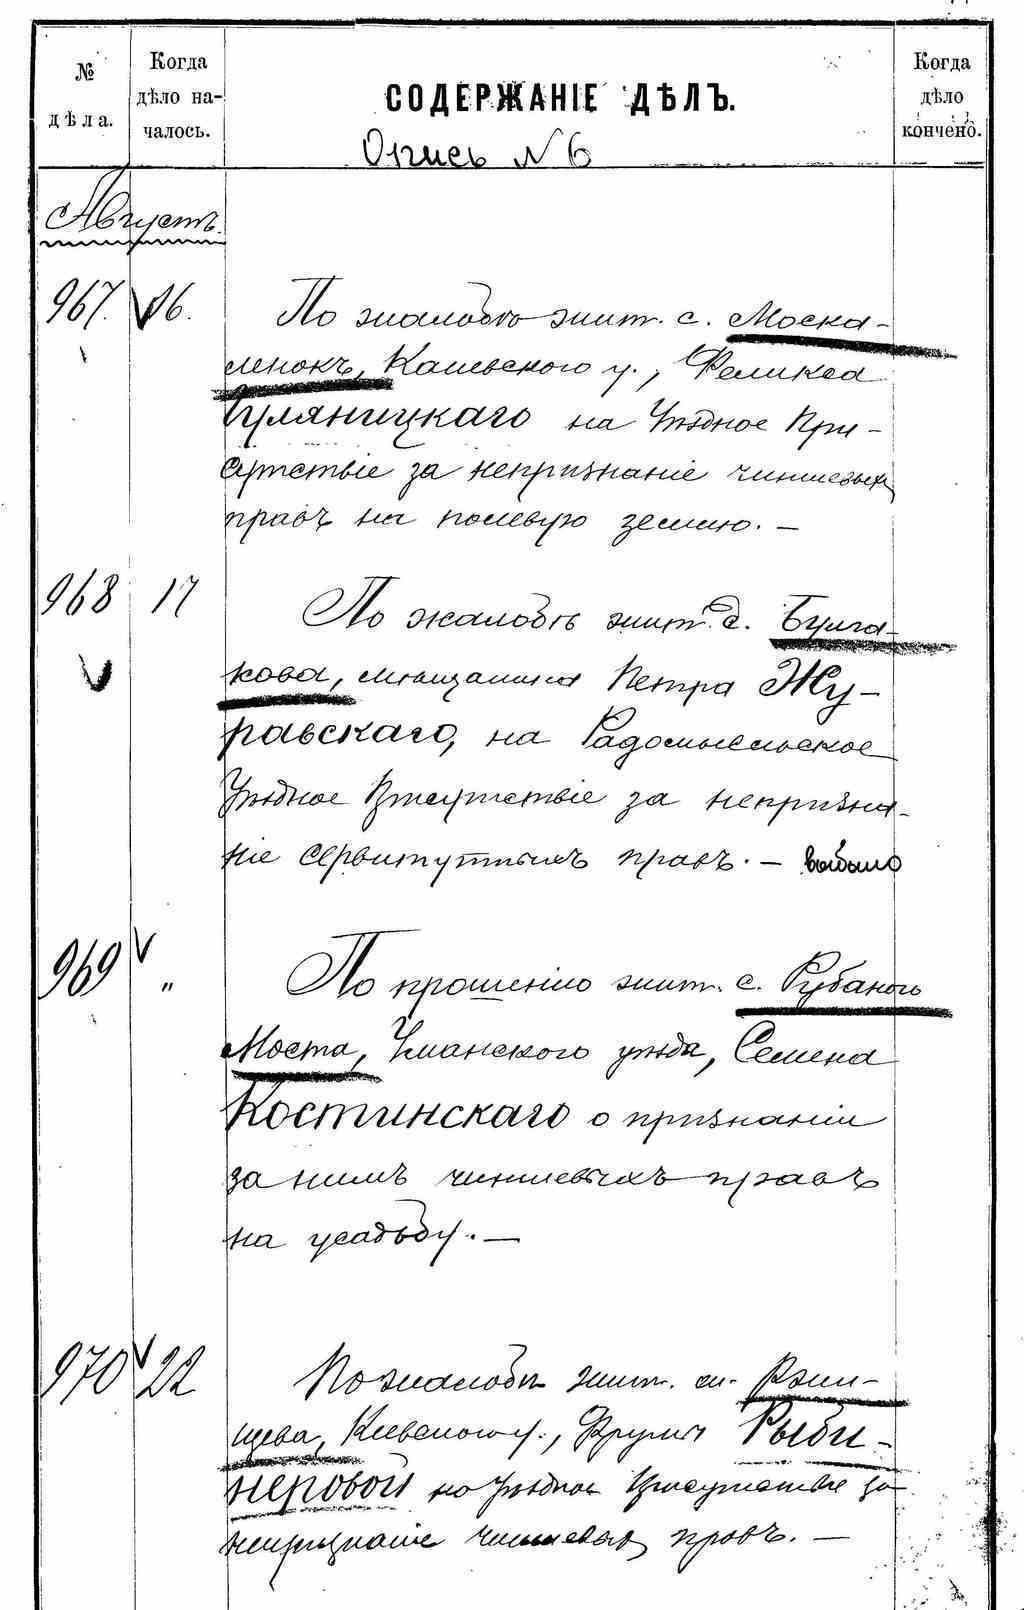 № дѣла.
Когда дѣло на-чалось.
СОДЕРЖАНІЕ ДѢЛЪ.
Когда дѣло кончено.
Опись № 6
Августъ.
967. 16. По жалобѣ жит. с. Моска-
ленокъ, Каневского у., Феликса
Гуляницкаго на Уѣздное При-
сутствіе за непризнаніе чиншевыхъ
правъ на полевую землю. —
968 17 По жалобѣ жит. с. Булга-
кова, мѣщанина Петра Жу-
равскаго, на Радомысльское
Уѣздное Присутствіе за непризна-
ніе сервитутныхъ правъ. — выбыло
969 „ По прошенію жит. с. Рубаного
Моста, Уманского уѣзда, Семена
Костинскаго о признаніи
за нимъ чиншевыхъ правъ
на усадьбу. —
970 22 По жалобѣ жит. м. Ржи-
щева, Кіевского у., Фрумы Рыби-
неровой на Уѣздное Присутствіе за
непризнаніе чиншевыхъ правъ. —